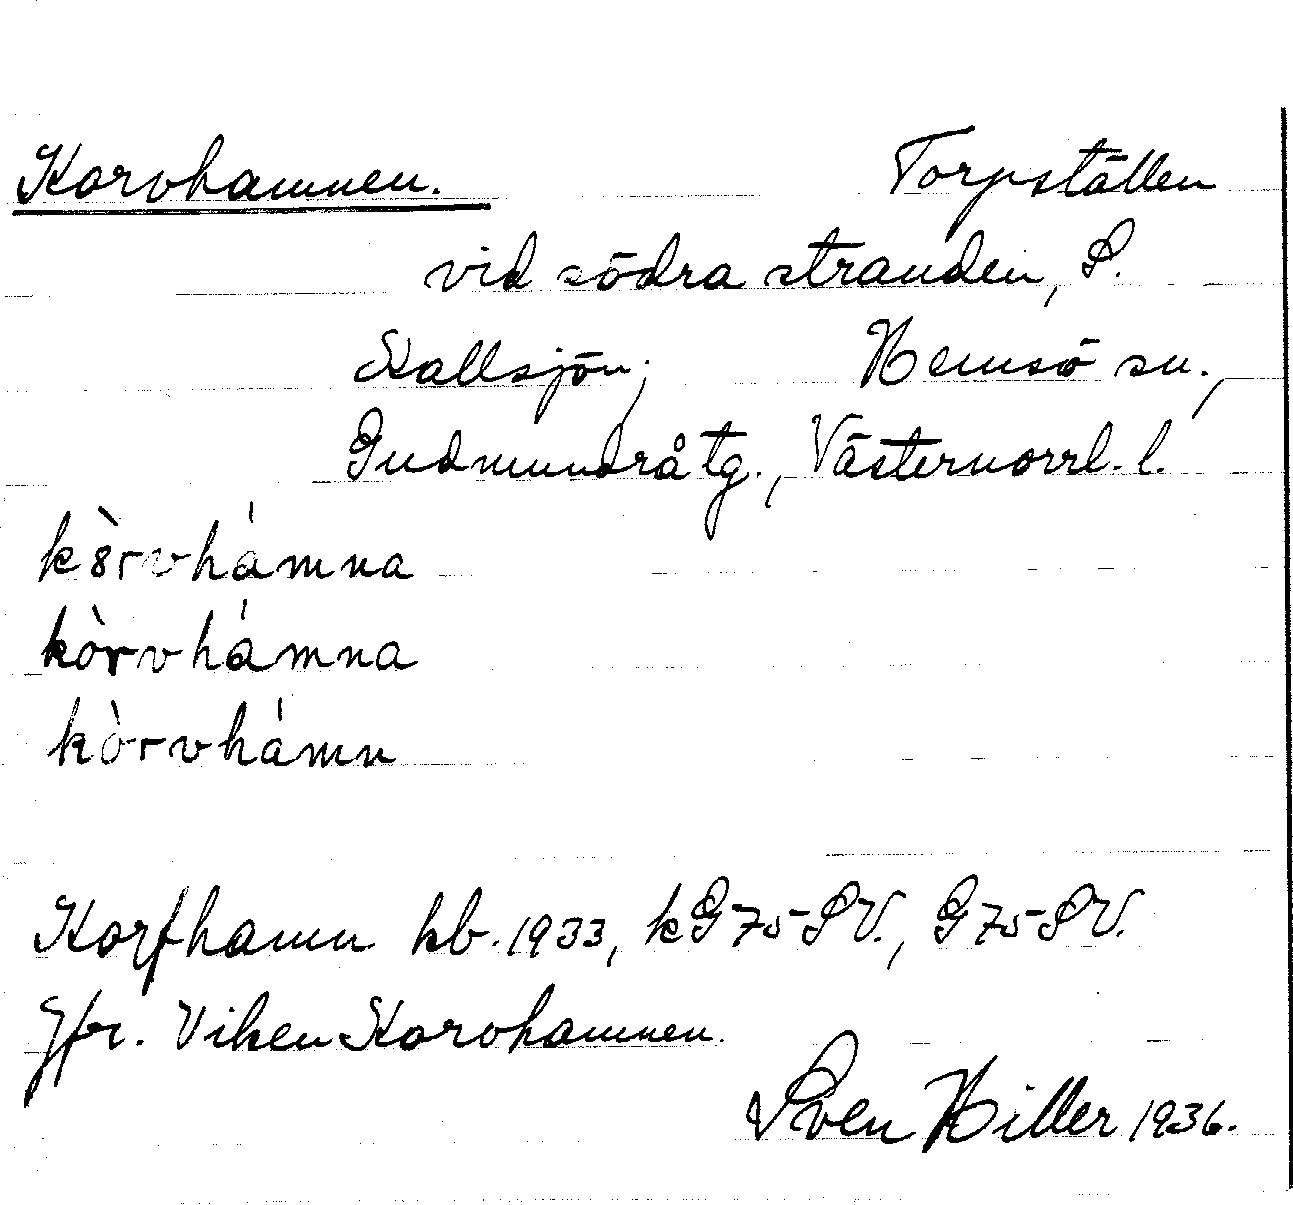 Korvhamnen. Torpställen
vid södra stranden, S.
Kallsjön; Hemsö sn.,
Gudmundrå tg., Västernorrl. l.
kòrvhámna
kòrvhámna
kòrvhámn
Korfhamn kb. 1933, kG75SV., G75SV.
Jfr. Viken Korvhamnen.
Sven Hiller 1936.